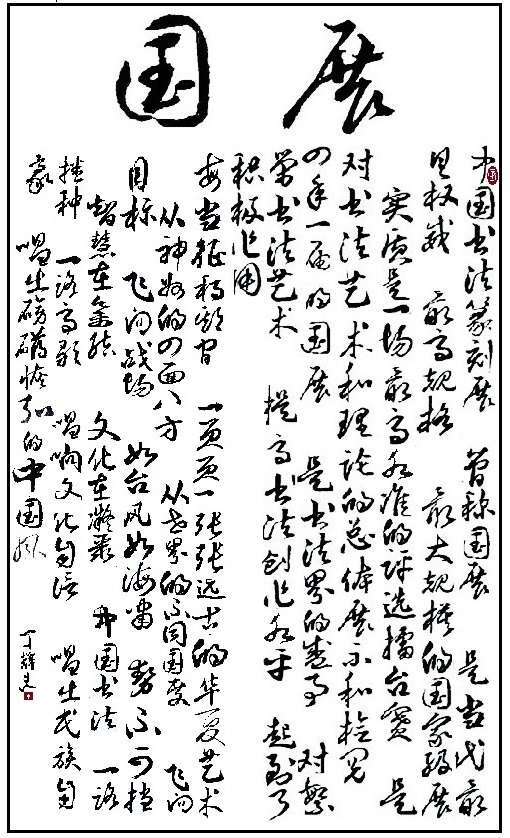 国展
中国书法篆刻展 曾称国展 是当代最
具权威 最高规格 最大规模的国家级展
实质是一场最高水准的评选擂台赛 是
对书法艺术和理论的总体展示和检阅
四年一届的国展 是书法界的盛事 对繁
荣书法艺术 提高书法创作水平 起到了
积极作用
每当征稿期间 一页页一张张远古的华夏艺术
从神州的四面八方 从世界的不同国度 飞向
目标 飞向战场 如台风如海啸 势不可挡
智慧在集结 文化在凝聚 中国书法 一路
播种 一路高歌 唱响文化自信 唱出民族自
豪 唱出磅礴恢弘的中国